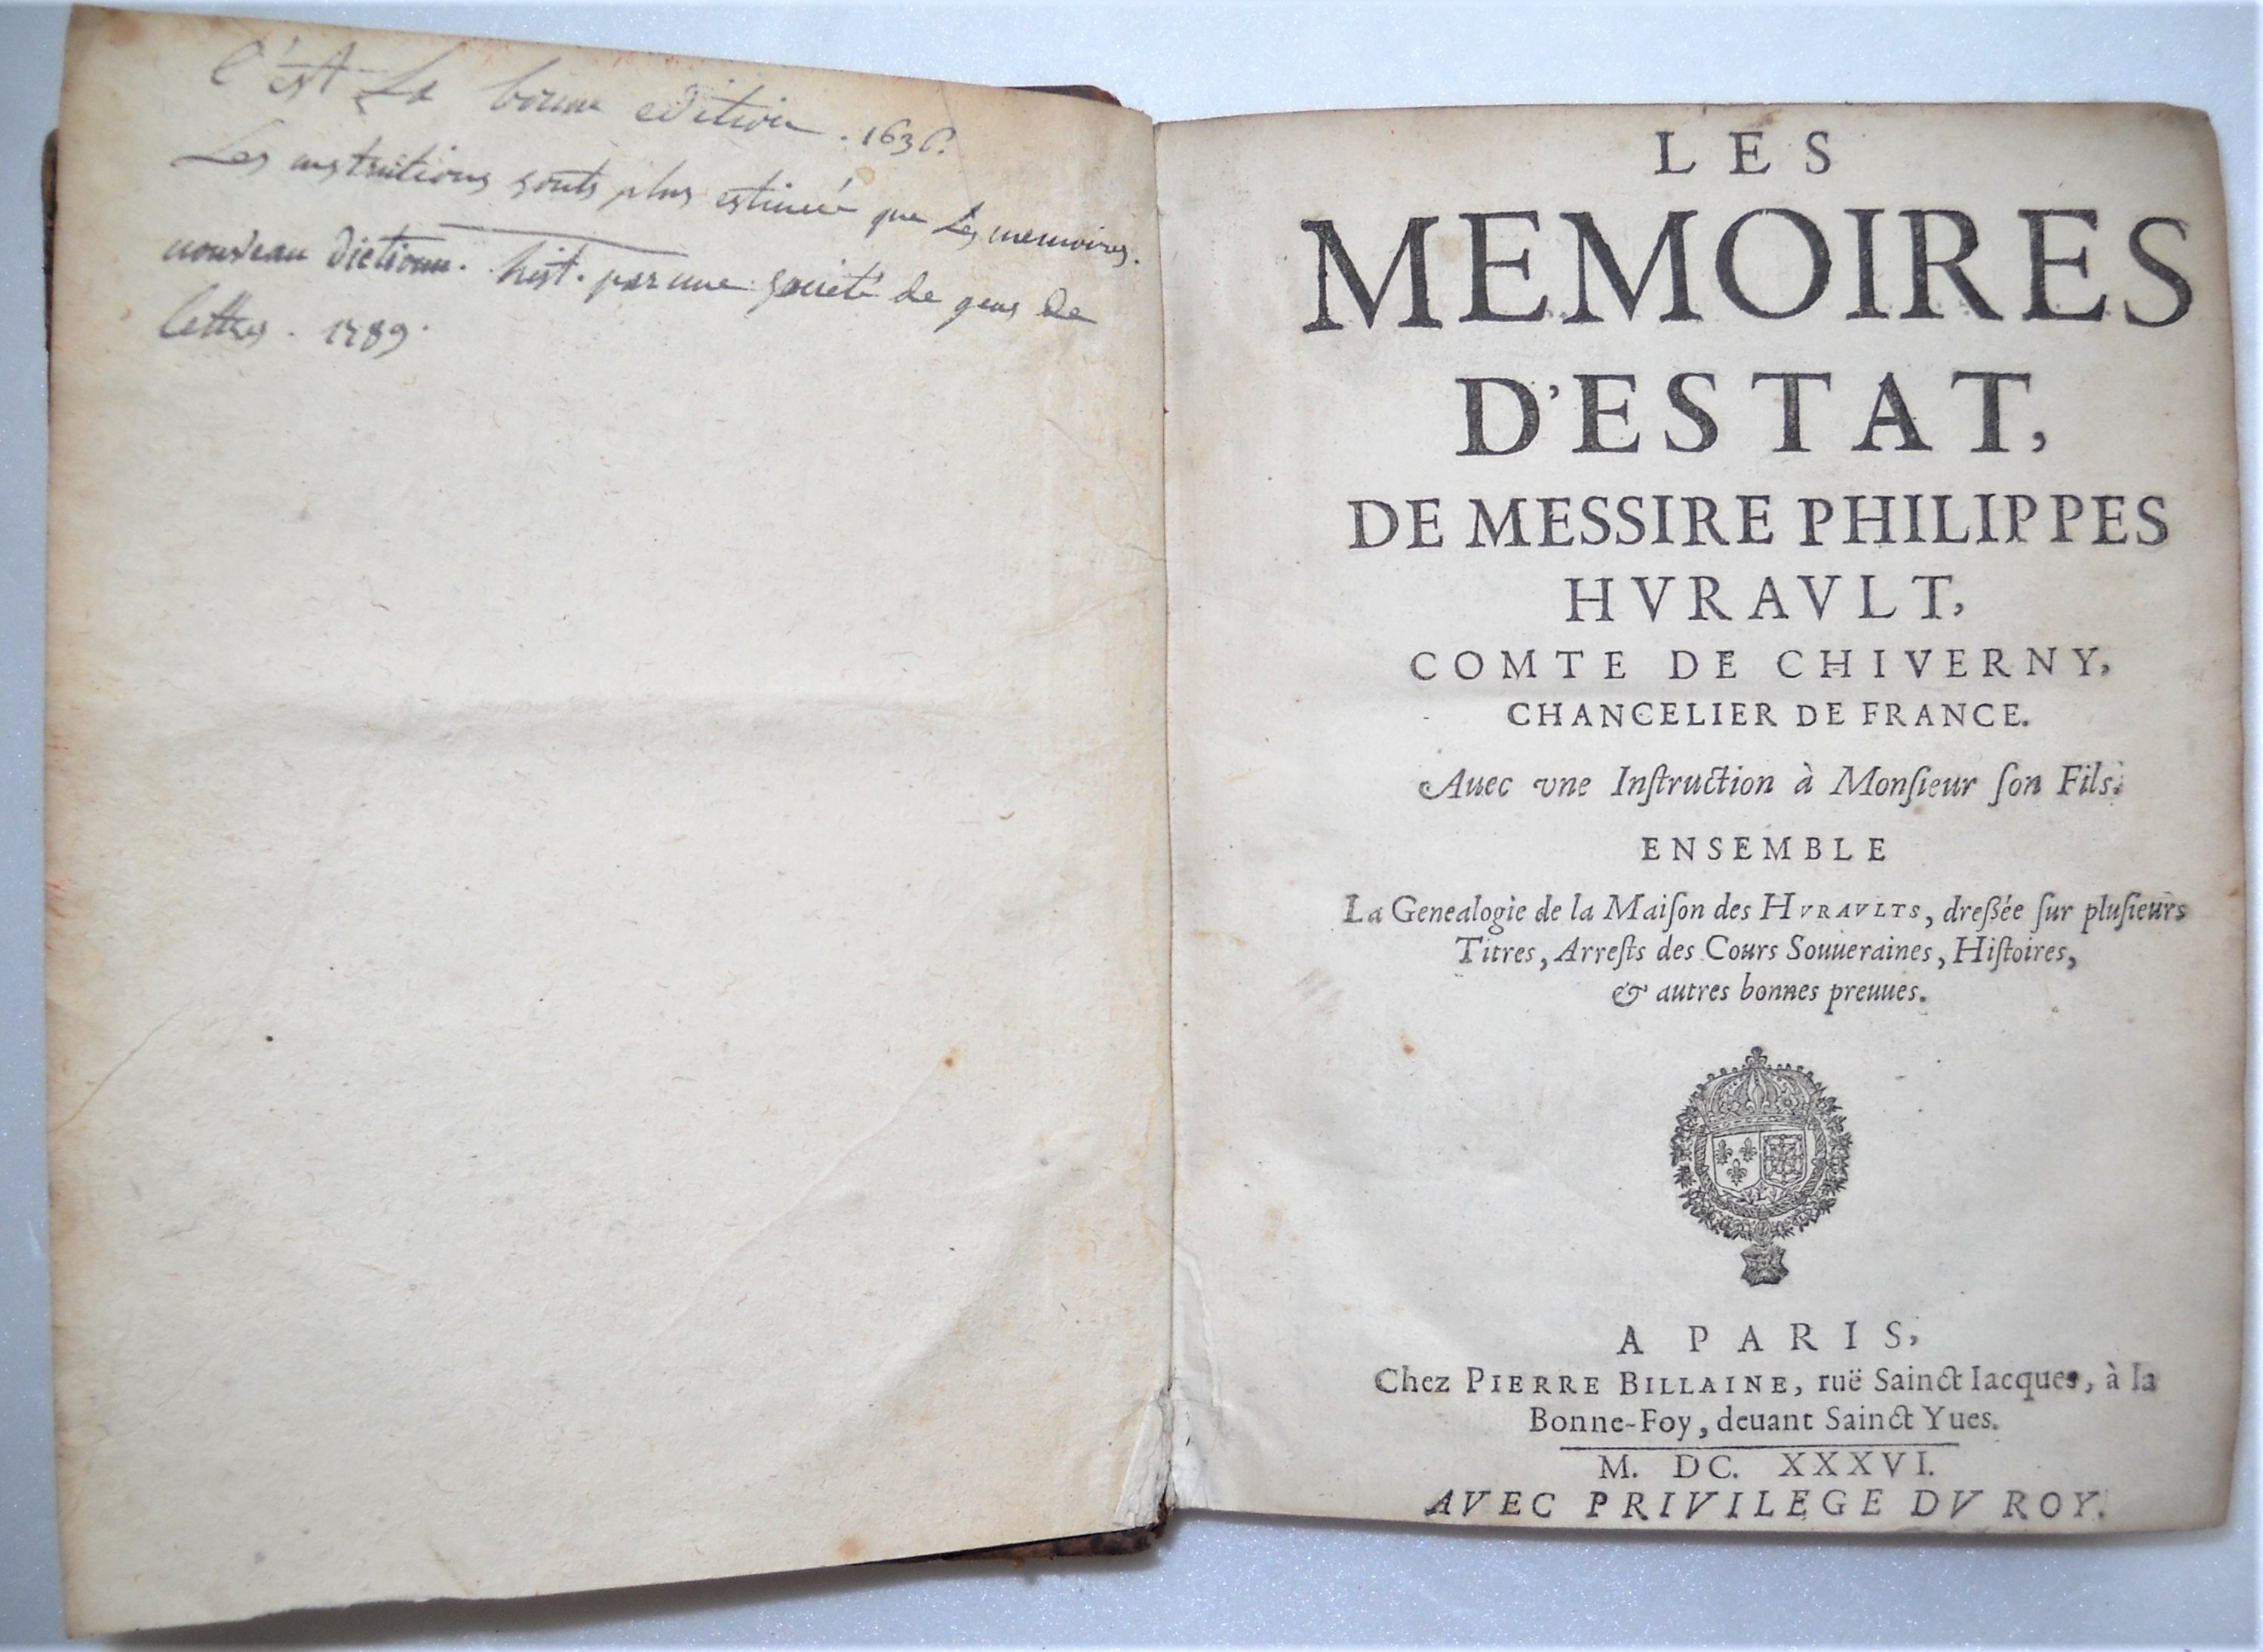 c'est La bonne edition. 1636.
Les instructions sonts plus estimeé que Les memoires.
nouveau dictionn. hist. par une societé de gens de
lettres. 1789.
LES
MEMOIRES
D'ESTAT,
DE MESSIRE PHILIPPES
HVRAVLT,
COMTE DE CHIVERNY,
CHANCELIER DE FRANCE.
Auec vne Inſtruction à Monſieur ſon Fils.
ENSEMBLE
La Genealogie de la Maiſon des HVRAVLTS, dreßée ſur pluſieurs
Titres, Arreſts des Cours Souueraines, Hiſtoires,
& autres bonnes preuues.
A PARIS,
Chez PIERRE BILLAINE, ruë Sainct Iacques, à la
Bonne-Foy, deuant Sainct Yues.
M. DC. XXXVI.
AVEC PRIVILEGE DV ROY.